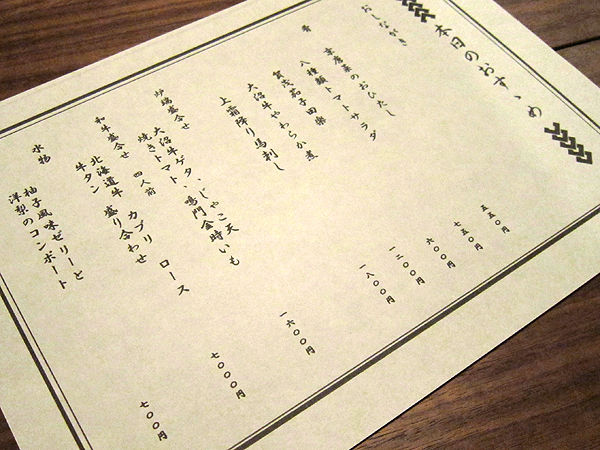 本日のおすゝめ
おしながき
肴
京唐菜のおひたし 五五〇円
八種類トマトサラダ 七五〇円
賀茂茄子田楽 六〇〇円
大沼牛やわらか煮 一二〇〇円
上霜降り馬刺し 一八〇〇円
炉端盛合せ
大沼牛ゲタ、じゃこ天
焼きトマト、鳴門金時いも 一六〇〇円
和牛盛合せ 四人前
北海道牛 カブリ ロース
牛タン 盛り合わせ 七〇〇〇円
水物
柚子風味ゼリーと
洋梨のコンポート 七〇〇円